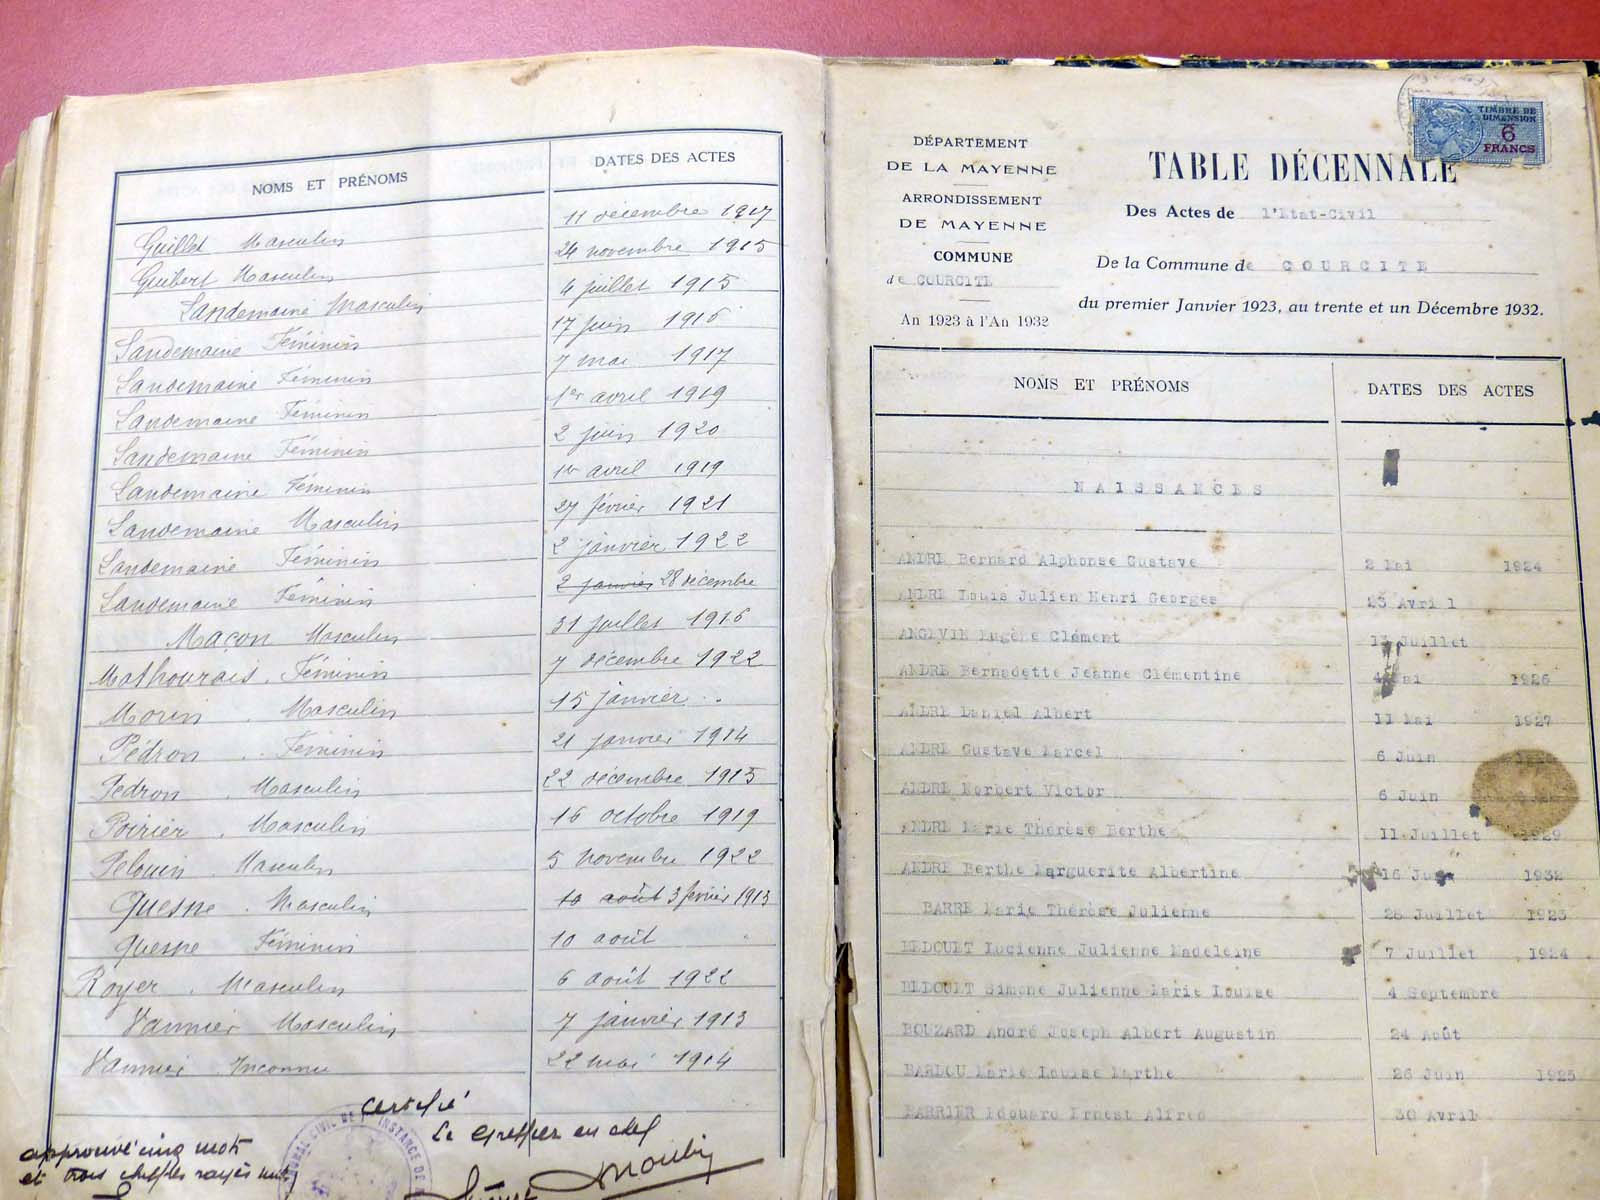 NOMS ET PRÉNOMS DATES DES ACTES
Guillet Masculin 11 décembre 1917
Guibert Masculin 24 novembre 1915
Landemaine Masculin 4 juillet 1915
Landemaine Féminin 17 juin 1916
Landemaine Féminin 7 mai 1917
Landemaine Féminin 1er avril 1919
Landemaine Féminin 2 juin 1920
Landemaine Féminin 1er avril 1919
Landemaine Masculin 27 février 1921
Landemaine Féminin 2 janvier 1922
Landemaine Féminin 2 janvier 28 décembre
Maçon Masculin 31 juillet 1916
Mathourais . Féminin 7 décembre 1922
Morin . Masculin 15 janvier ..
Pédron . Féminin 21 janvier 1914
Pedron . Masculin 22 décembre 1915
Poirier . Masculin 16 octobre 1919
Pelouin . Masculin 5 novembre 1922
Quesne . Masculin 10 août 3 février 1913
Quesne Féminin 10 août
Royer . Masculin 6 août 1922
Vannier Masculin 7 janvier 1913
Vannier Inconnu 22 mai 1914
Certifié
Le Greffier en chef
approuvé cinq mots
et trois chiffres rayés nuls
DÉPARTEMENT
DE LA MAYENNE
ARRONDISSEMENT
DE MAYENNE
COMMUNE
de COURCITE
An 1923 à l'An 1932
TIMBRE DE
DIMENSION
6
FRANCS
TABLE DÉCENNALE
Des Actes de l'Etat-Civil
De la Commune de COURCITE
du premier Janvier 1923, au trente et un Décembre 1932.
NOMS ET PRÉNOMS DATES DES ACTES
NAISSANCES
ANDRE Bernard Alphonse Gustave 2 Mai 1924
ANDRE Louis Julien Henri Georges 23 Avril
ANGEVIN Eugène Clément 13 Juillet
ANDRE Bernadette Jeanne Clémentine 4 Mai 1926
ANDRE Daniel Albert 11 Mai 1927
ANDRE Gustave Marcel 6 Juin
ANDRE Norbert Victor 6 Juin
ANDRE Marie Thérèse Berthe 11 Juillet 1929
ANDRE Berthe Marguerite Albertine 16 1932
BARRE Marie Thérèse Julienne 28 Juillet 1923
BEDOUET Lucienne Julienne Madeleine 7 Juillet 1924
BEDOUET Simone Julienne Marie Louise 4 Septembre
BOUZARD André Joseph Albert Augustin 24 Août
BARDOU Marie Louise Marthe 26 Juin 1925
BARRIER Edouard Ernest Alfred 30 Avril